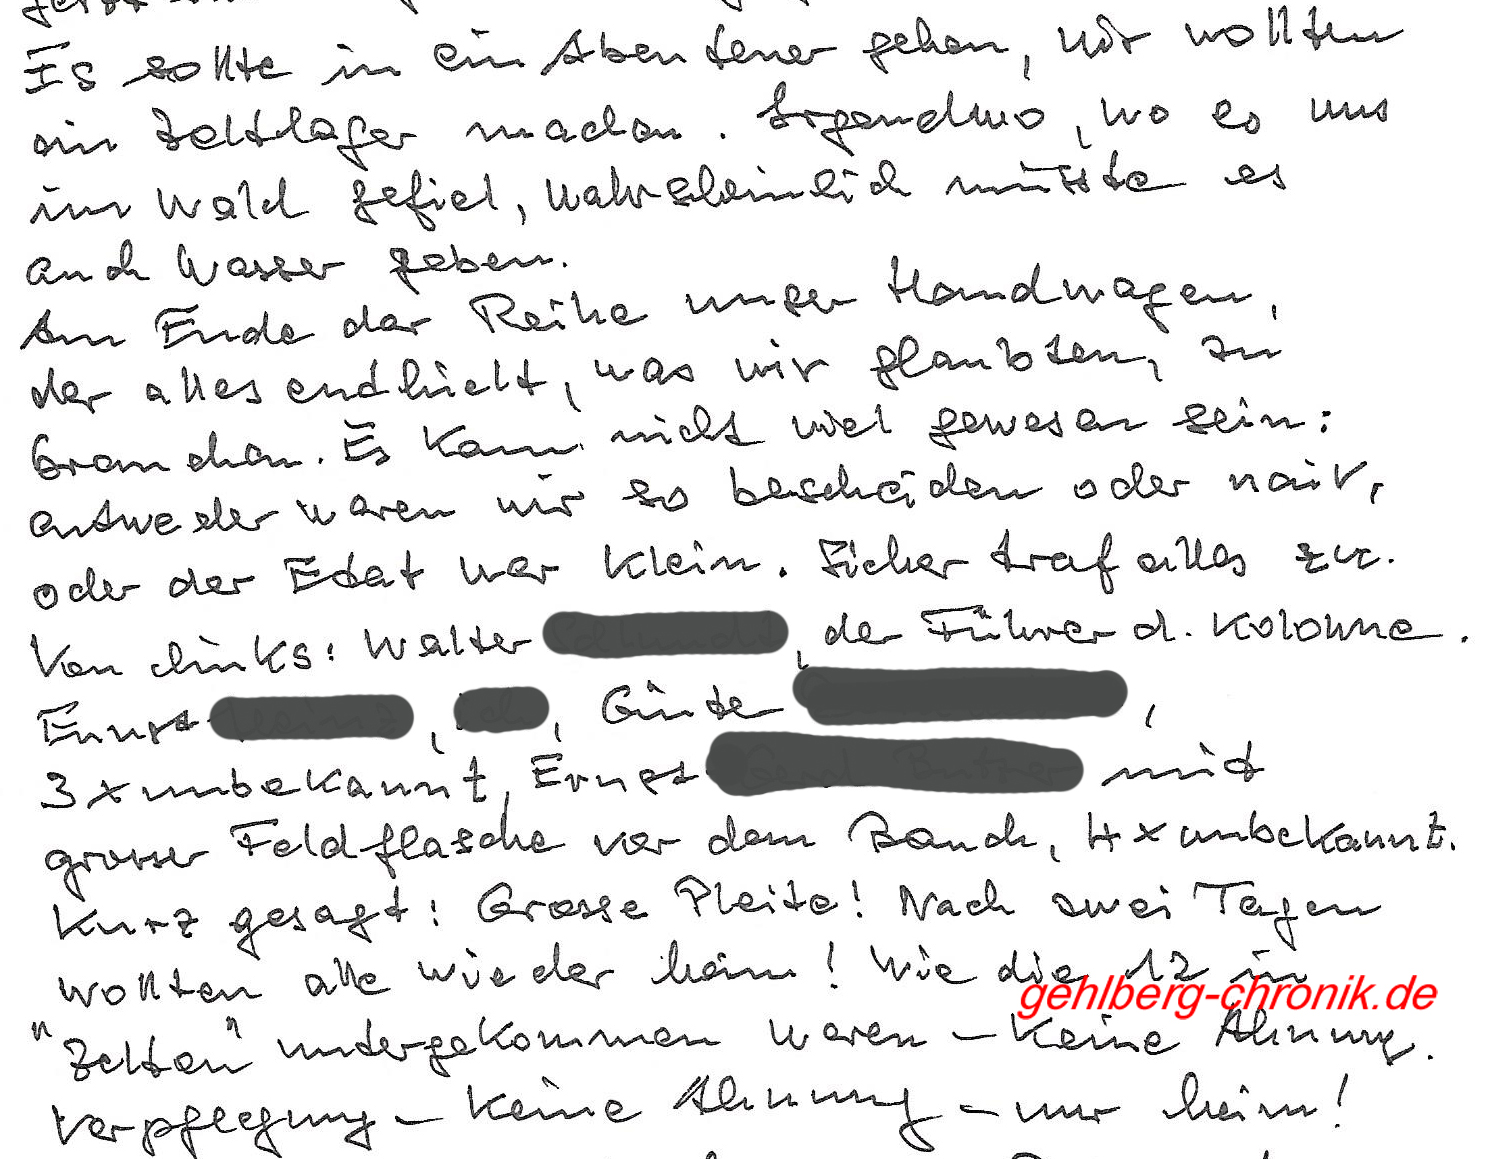 Es sollte in ein Abenteuer gehen, wir wollten
ein Zeltlager machen. Irgendwo, wo es uns
im Wald gefiel, wahrscheinlich müsste es
auch Wasser geben.
Am Ende der Reihe unser Handwagen,
der alles endhielt, was wir glaubten, zu
brauchen. Es kann nicht viel gewesen sein:
entweder waren wir so bescheiden oder naiv,
oder der Etat war klein. Sicher traf alles zu.
Von links: Walter , der Führer d. Kolonne.
Ernst , , Günter ,
3x unbekannt, Ernst mit
grosser Feldflasche vor dem Bauch, 4x unbekannt.
Kurz gesagt: Grosse Pleite! Nach zwei Tagen
wollten alle wieder heim! Wie die 12 in
gehlberg-chronik.de
"Zelten" untergekommen waren – keine Ahnung.
Verpflegung – keine Ahnung – nur heim!